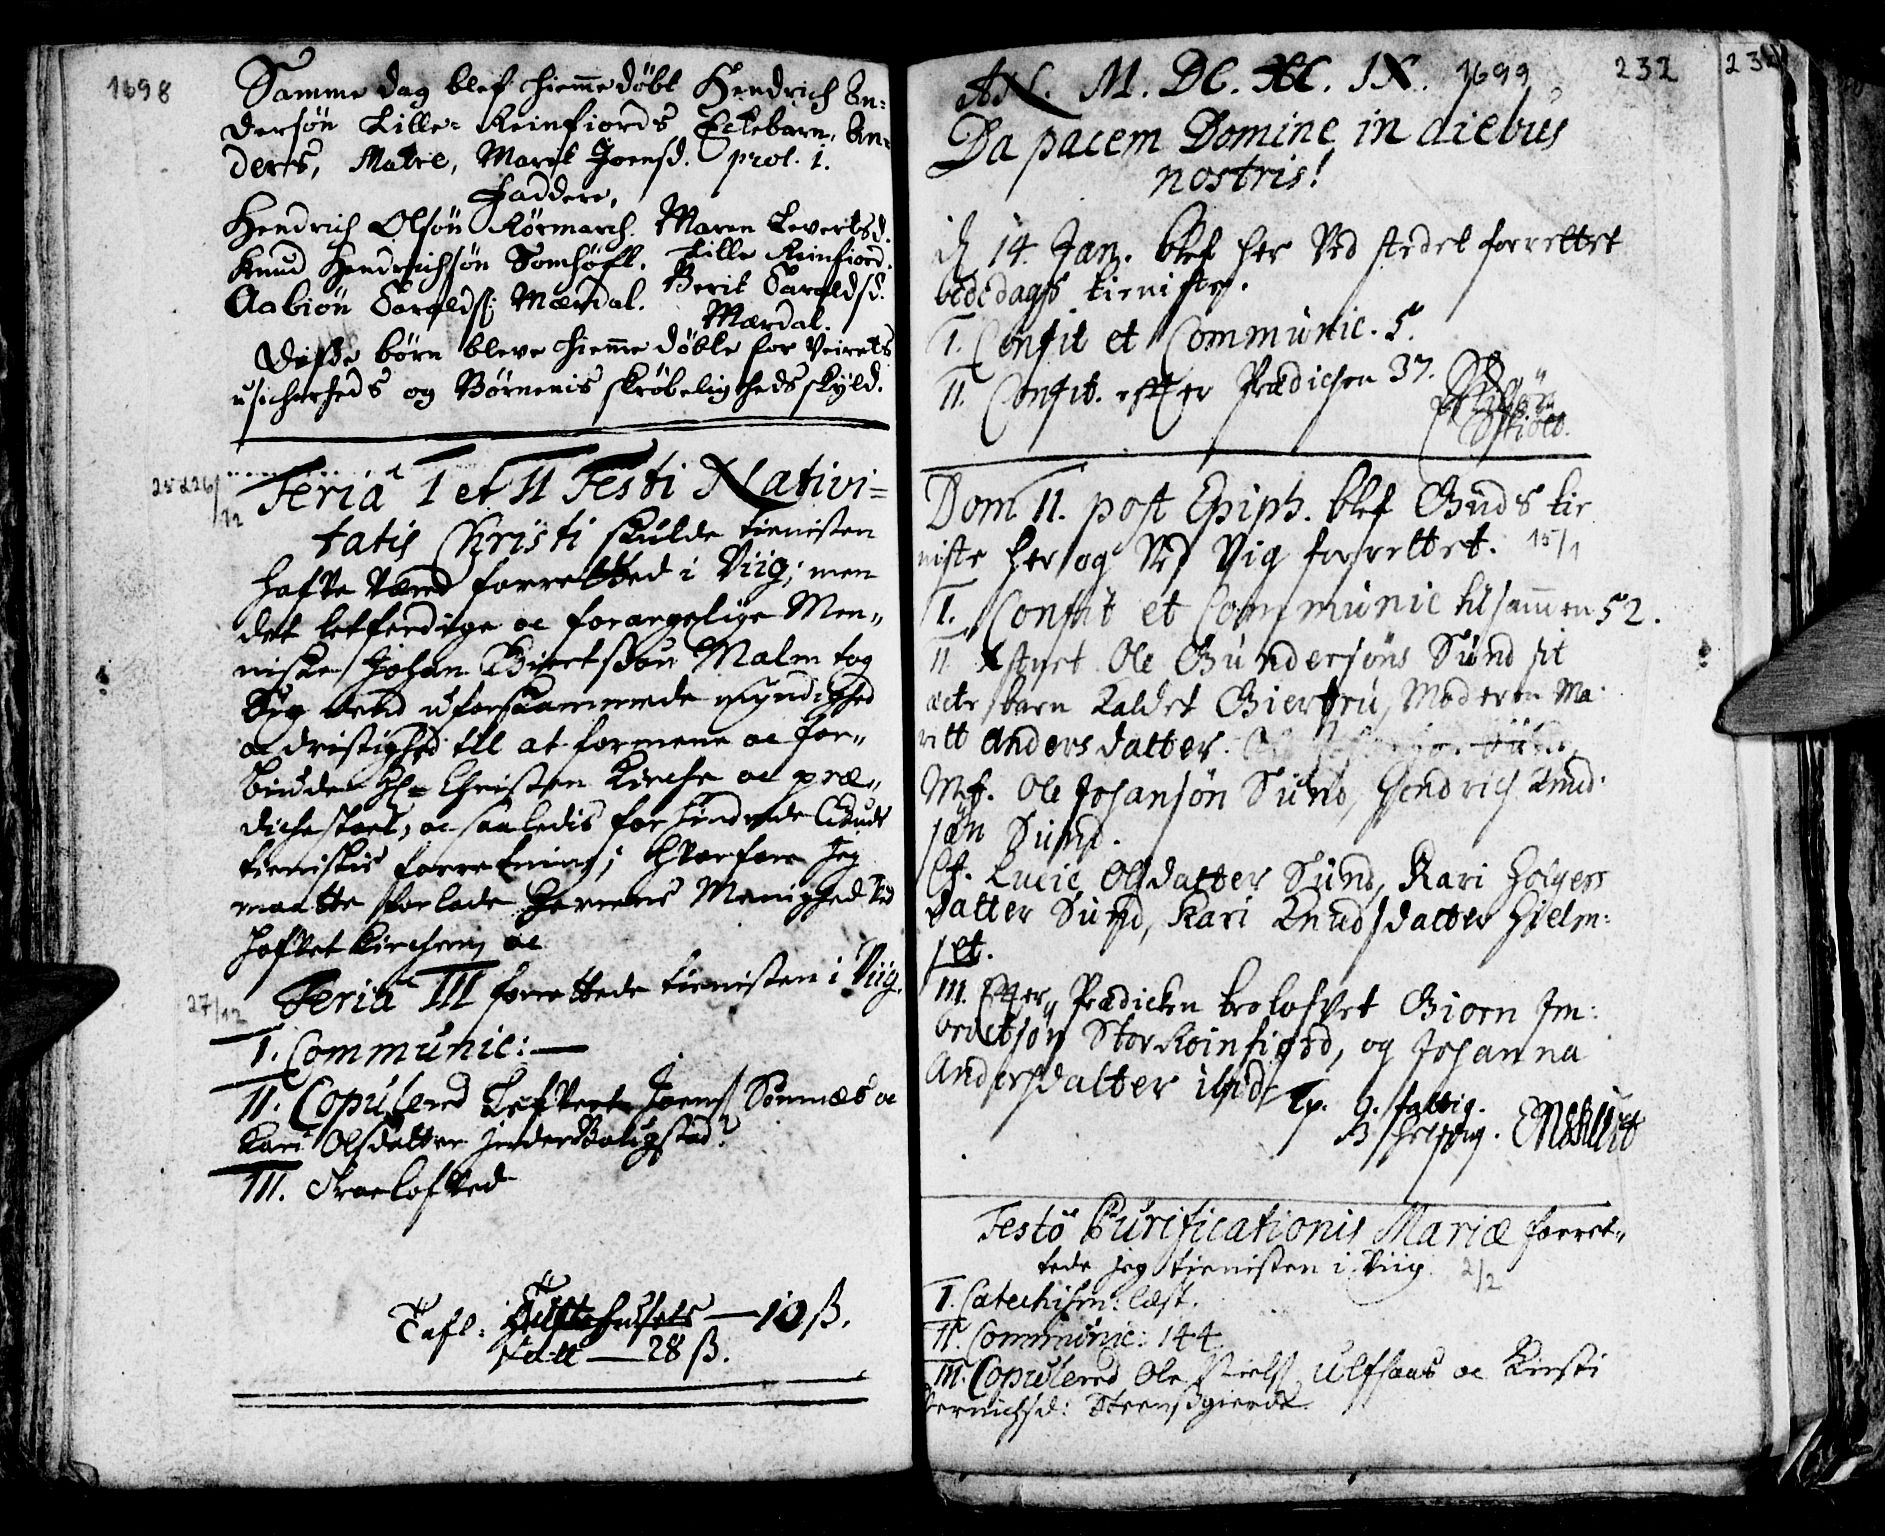 1698
Samme dag blef hiemedøbt Hendrich An=
dersøn Lille=Reinfiords Ectebarn, An=
ders, Matre, Marit Joensd. prol. 1.
Faddere,
Hendrich Olsøn Kørmarch. Maren Levertsd.
Knud Hendrichsøn Lille Reinfiord.
Asbiøn Haralds: Mærdal. Berit Haraldsd.
Mærdal.
Disse børn bleve hieme døbte for Veirets
usicherheds og Børnenis skrøbeligheds skyld.
25 & 26/12
Feriâ I et II Festi Nativi=
tatis Christi skulde tienisten
hafve væred forretted i Viig; men
det letferdige oc forargelige Men=
niske Johan Biertsøn Malm tog
Sig uforskammede myndighed
oc dristighed till at formene oc for=
biude Christen Kirche oc præ=
dichestoel, oc saaledis forhindrede Guds
tienistis forretning; Hvorfore jeg
maatte forlade Herrens Menighed ved
hofvet Kirchen, oc
27/12
Feriâ III forrettede tienisten i Viig.
I. Communic:
II. Copulered Joens Sonnæs oc
Kari Olsdatter
III. Troelofved
Tafl: 10 ß.
28 ß.
232
232
AN. M. DC. XC. IX. 1699
Da pacem Domine in diebus
nostris!
d 14. Jan. blef her Ved stedet forrettet
bededags tieniste.
I. Confit et Communic. 5.
II. Confit. efter Prædichen 37.
Dom II. post Epiph. blef Guds tie
niste her og Ved Vig forrettet. 15/1
I. Confit et Communic tilsammen 52.
II. Xstnet Ole Gundersøns Sund sit
ecte barn Kaldet Giertru, Moderen Ma
ritt Andersdatter.
Mf. Ole Johansøn Sund, Hendrich Knud
søn Sund.
Qf. Lucie Olsdatter Sund, Kari Holgers
datter Sund, Kari Knudsdatter Hielm:
set.
III. Efter Prædicken trolofvet Biorn Im:
bretsøn Stor Reinfiord, og Johanna
Andersdatter ibid.
Festo Purificationis Mariæ forret=
tede jeg tienisten i Viig 2/2
I. Catechism: læst.
II. Communic: 144
III. Copulered Ole Niels: Ulfsaas oc Kirsti